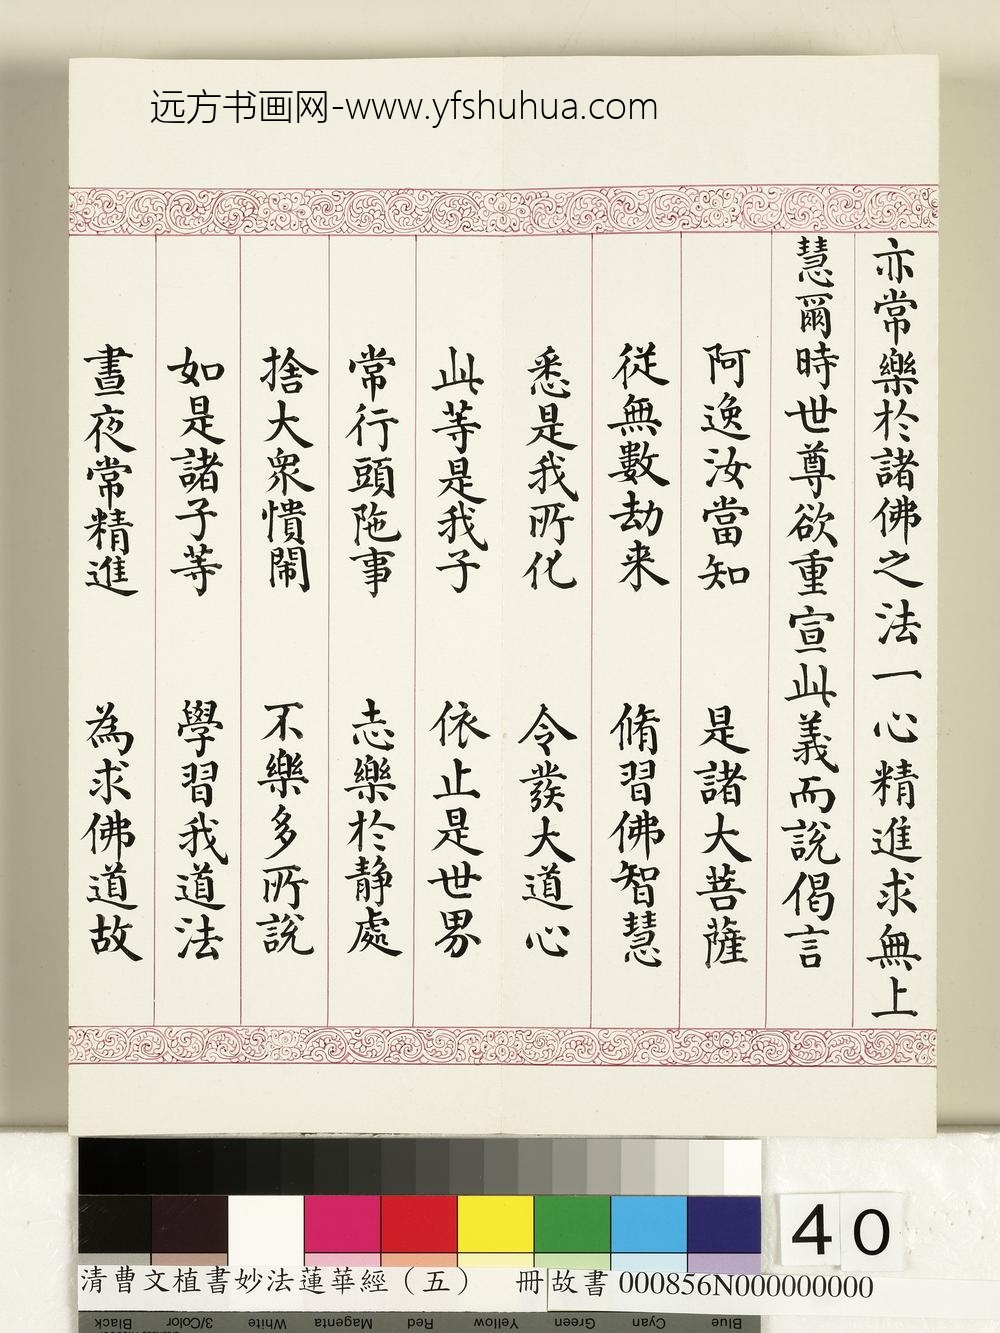 远方书画网-www.yfshuhua.com
亦常樂於諸佛之法一心精進求無上
慧爾時世尊欲重宣此義而說偈言
阿逸汝當知 是諸大菩薩
從無數劫来 脩習佛智慧
悉是我所化 令發大道心
此等是我子 依止是世界
常行頭陁事 志樂於静處
捨大衆憒閙 不樂多所說
如是諸子等 學習我道法
晝夜常精進 為求佛道故
40
清曹文植書妙法蓮華經（五） 冊 故書000856N000000000
Black 3/Color White Magenta Red Yellow Green Cyan Blue